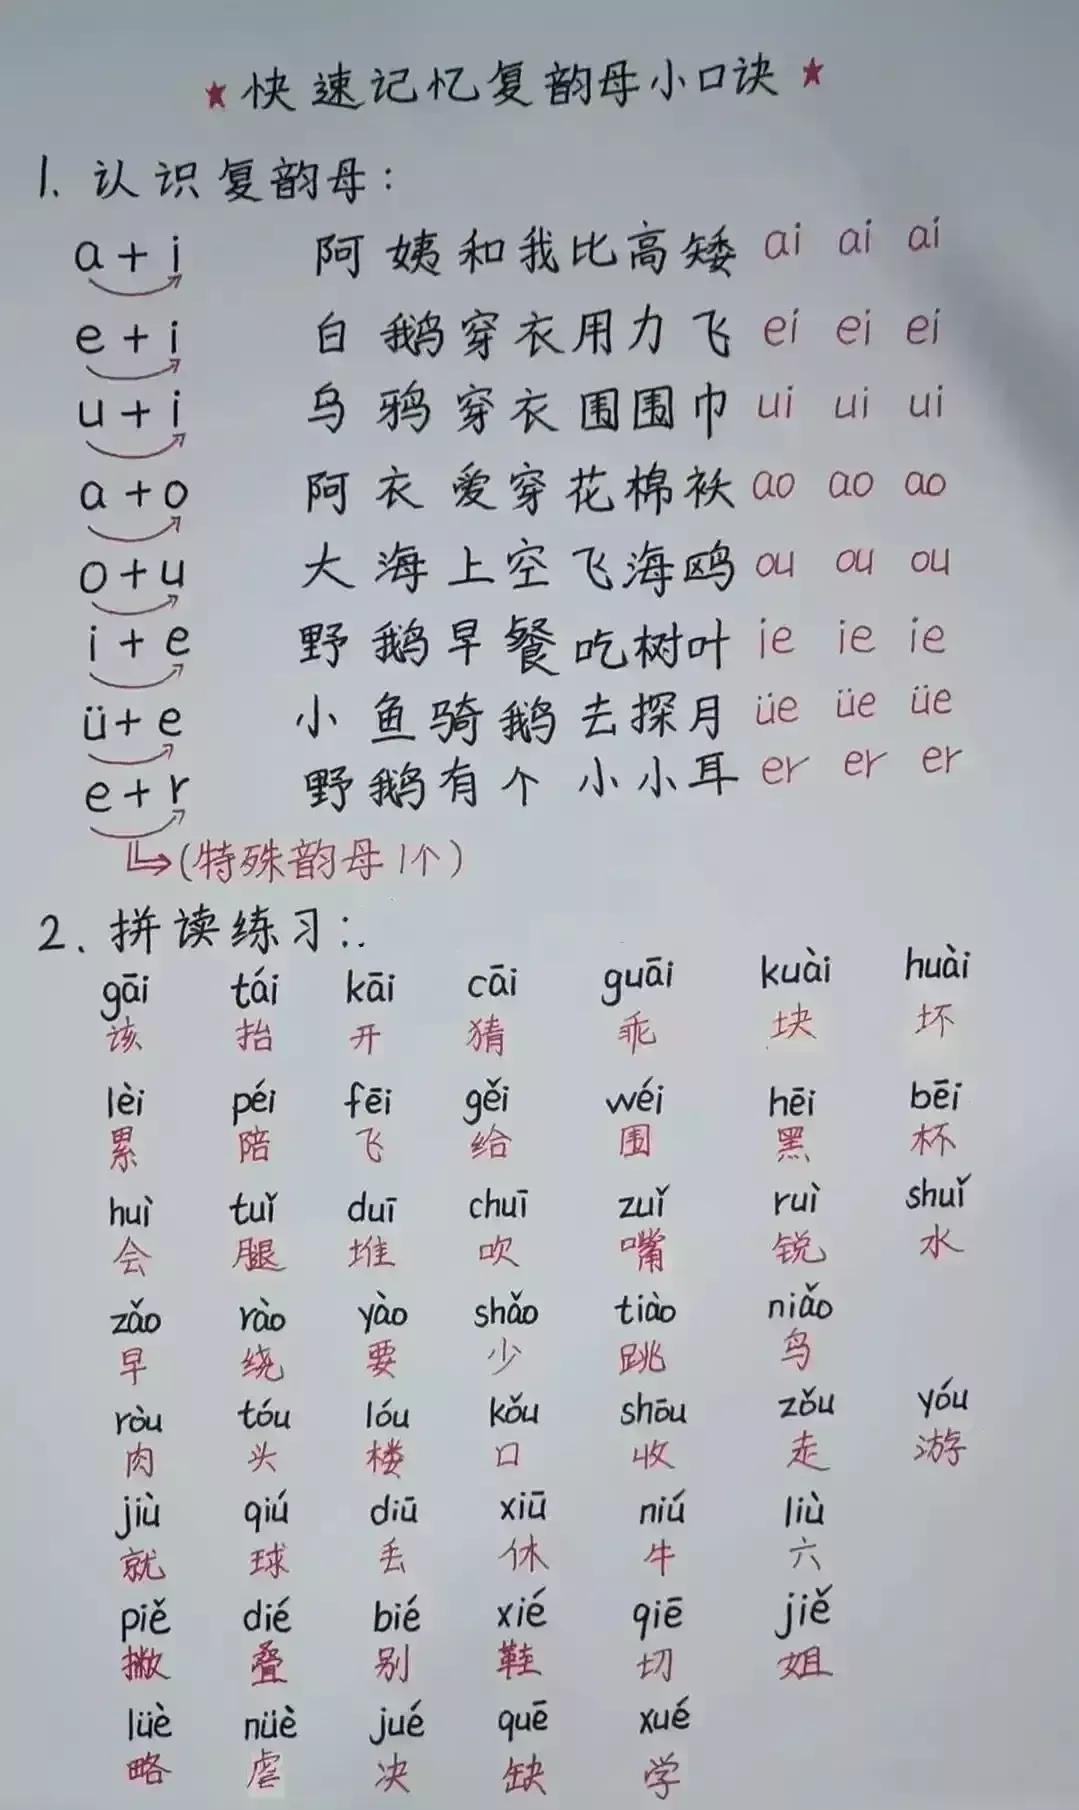 ★快速记忆复韵母小口诀★
1. 认识复韵母：
a+i 阿姨和我比高矮 ai ai ai
e+i 白鹅穿衣用力飞 ei ei ei
u+i 乌鸦穿衣围围巾 ui ui ui
a+o 阿衣爱穿花棉袄 ao ao ao
o+u 大海上空飞海鸥 ou ou ou
i+e 野鹅早餐吃树叶 ie ie ie
ü+e 小鱼骑鹅去探月 üe üe üe
e+r 野鹅有个小小耳 er er er
(特殊韵母1个)
2. 拼读练习：
gāi tái kāi cāi guāi kuài huài
该 抬 开 猜 乖 块 坏
lèi péi fēi gěi wéi hēi bēi
累 陪 飞 给 围 黑 杯
huì tuǐ duī chuī zuǐ ruì shuǐ
会 腿 堆 吹 嘴 锐 水
zǎo rào yào shǎo tiào niǎo
早 绕 要 少 跳 鸟
ròu tóu lóu kǒu shōu zǒu yóu
肉 头 楼 口 收 走 游
jiù qiú diū xiū niú liù
就 球 丢 休 牛 六
piě dié bié xié qiē jiě
撇 叠 别 鞋 切 姐
lüè nüè jué quē xué
略 虐 决 缺 学